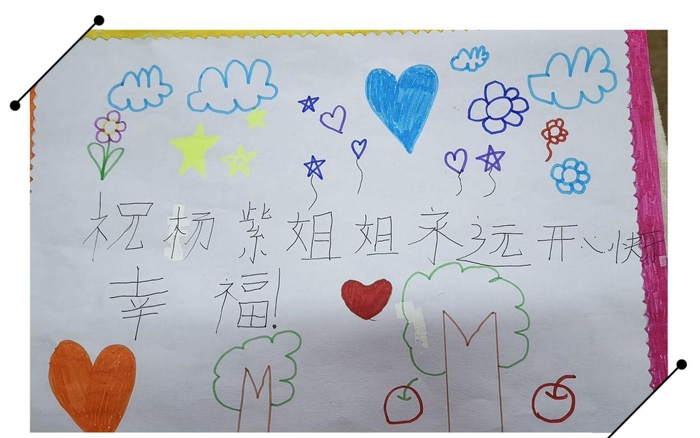 祝杨紫姐姐永远开心快乐
幸福!